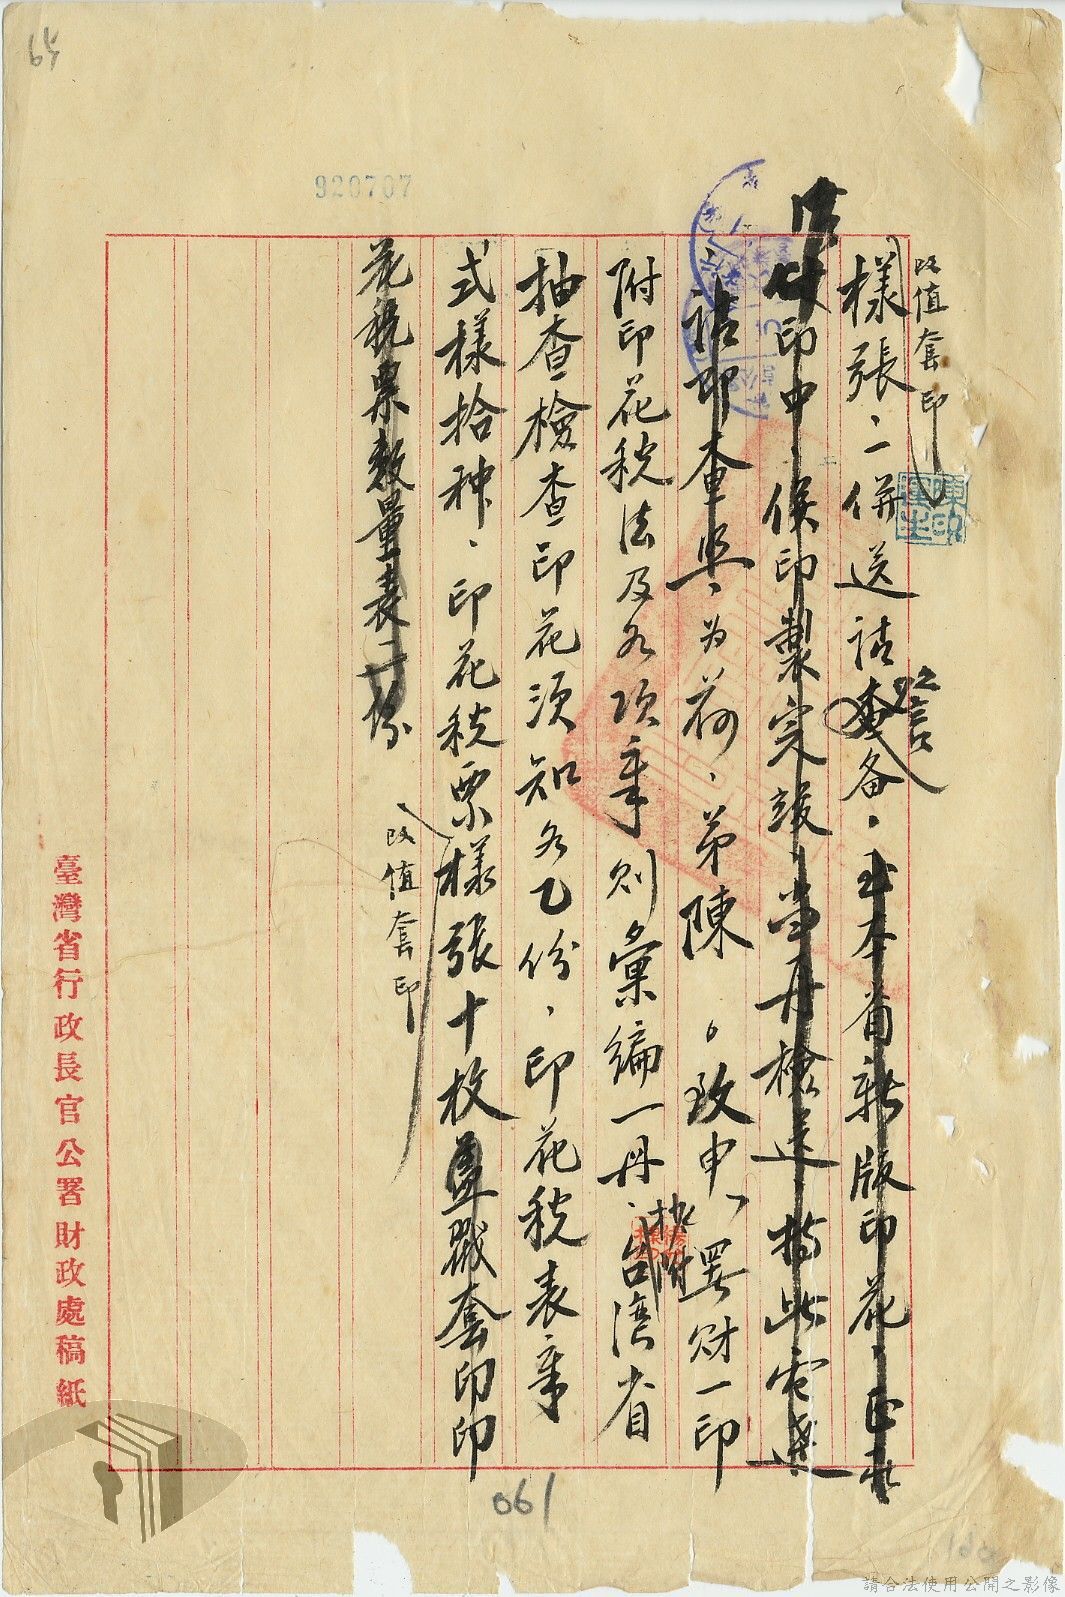 920707
改值套印
樣張、一併送請察督備。本省新版印花、正在
付印中、俟印製完竣、當再檢送、據此電送
請即查照、為荷、弟陳。致申署財一印
附印花稅法及各項章則彙編一冊、台湾省
抽查檢查印花須知各乙份、印花稅表章
式樣拾種、印花稅票樣張十枚 戳套印印
改值套印
花稅票数量表二份
臺灣省行政長官公署財政處稿紙
061
請合法使用公開之影像